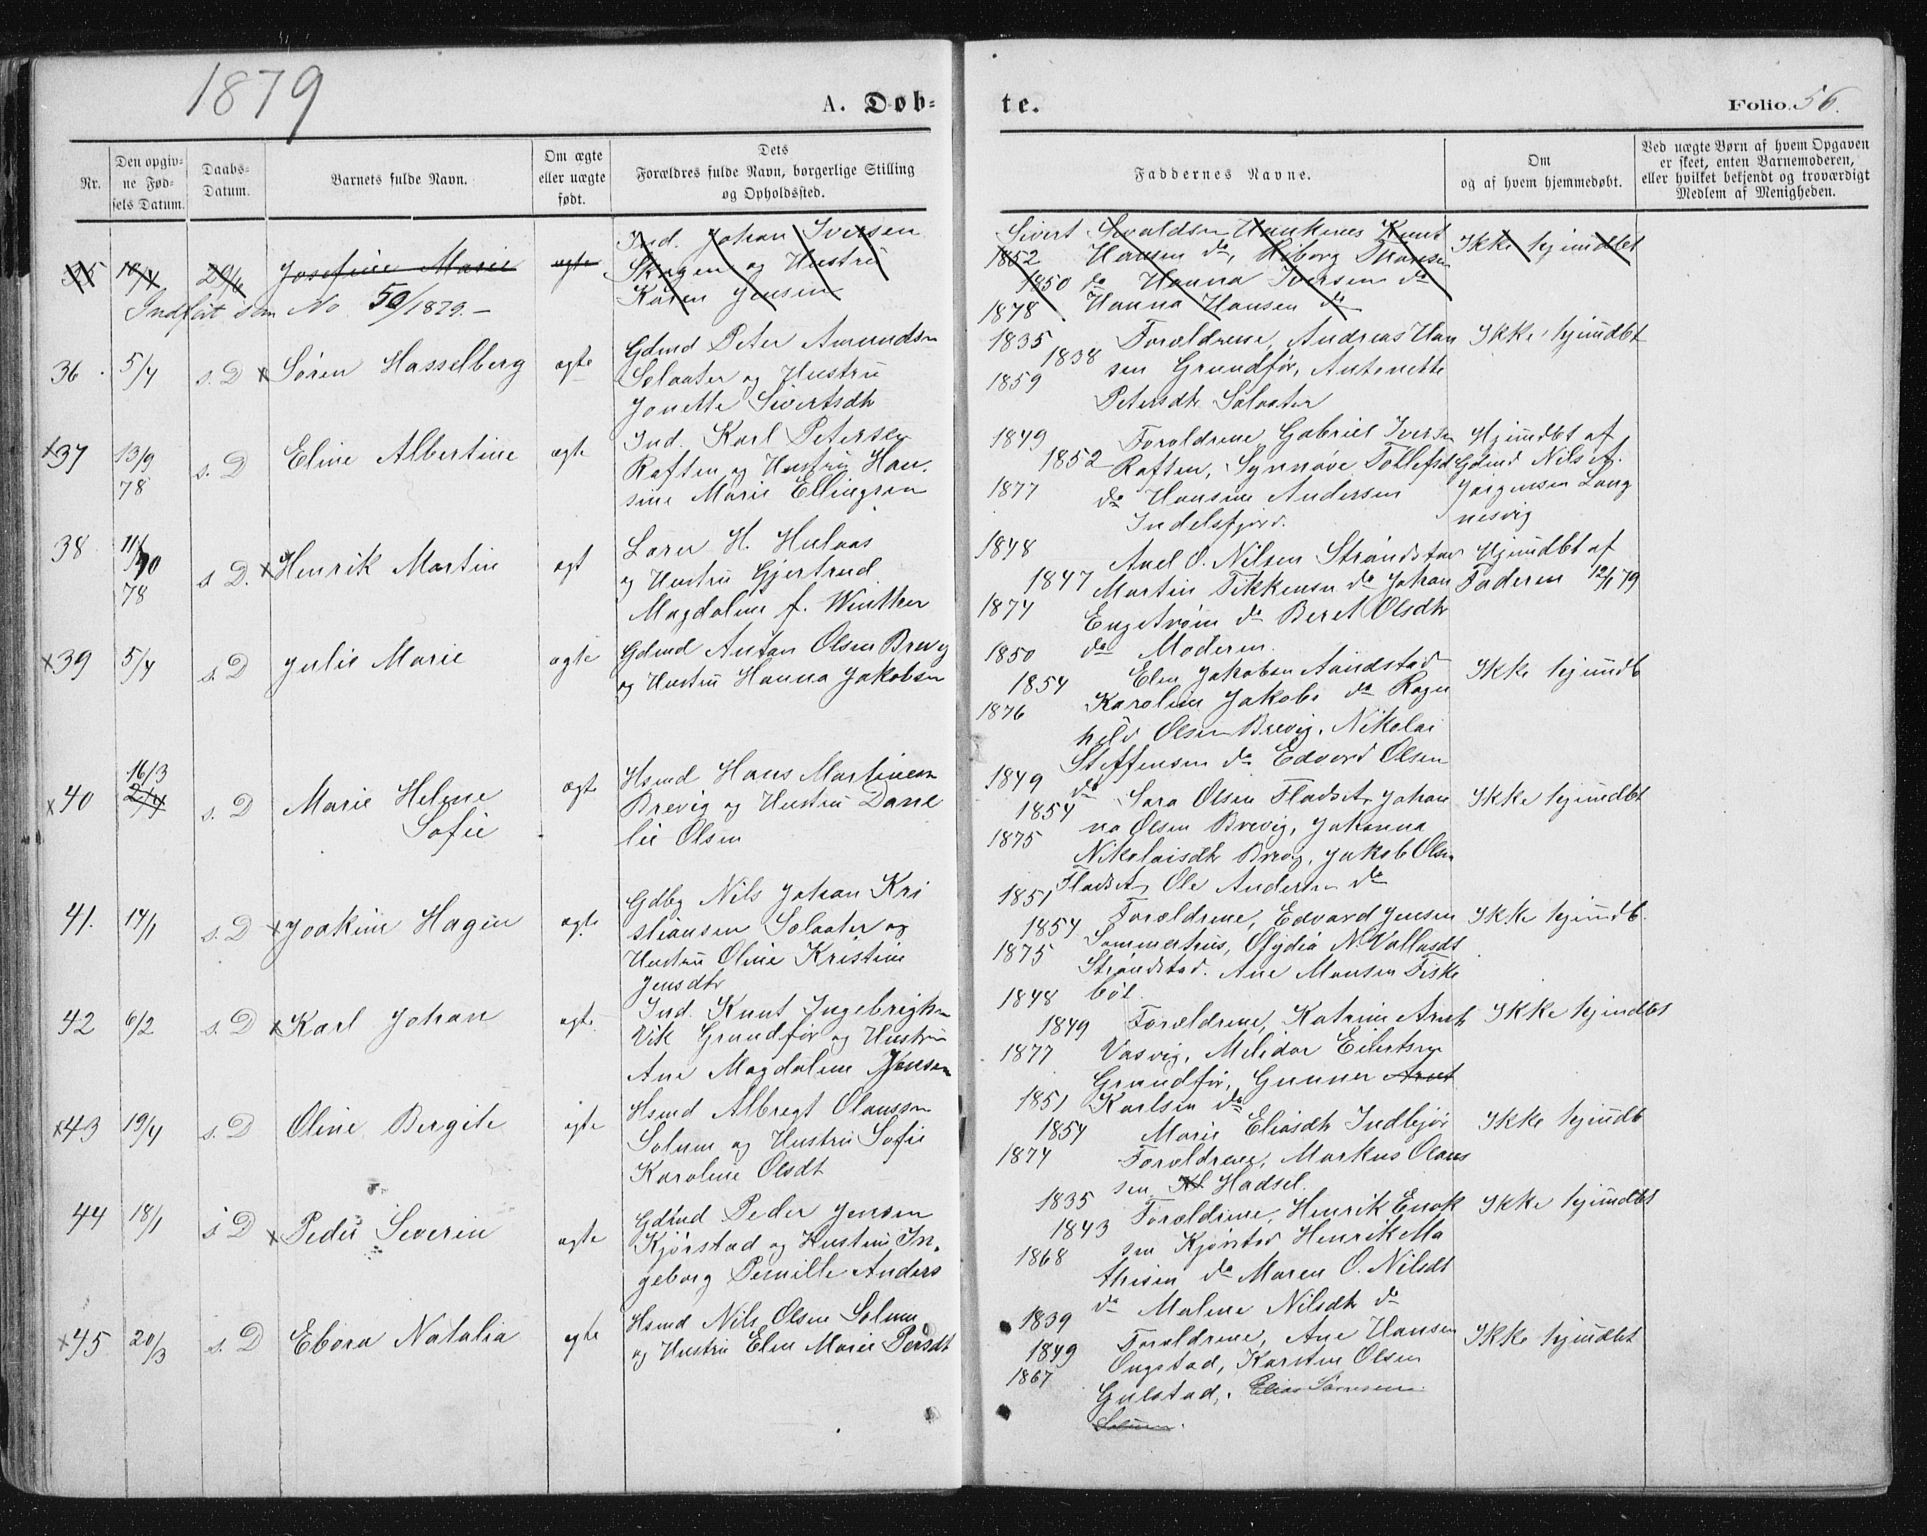 1879
A. Døb-
te.
Folio 56.
Nr.
Den opgiv-
ne Fød-
sels Datum.
Daabs-
Datum.
Barnets fulde Navn.
Om ægte
eller uægte
født.
Dets
Forældres fulde Navn, borgerlige Stilling
og Opholdssted.
Faddernes Navne.
Om
og af hvem hjemmedøbt.
Ved uægte Børn af hvem Opgaven
er skeet, enten Barnemoderen,
eller hvilket bekjendt og troværdigt
Medlem af Menigheden.
35
Josefine Marie
ægte
Ind. Johan Iversen
Skogen og Hustru
Karen Jensen
Indført som No 50/1879.-
Sivert Sivaldsen Hanknes Knut
1852 Hansen do,
1850 do Hanna Iversen do
1878 Hanna Hansen do
Ikke hjemdbt
36.
5/4
s. D
x Søren Hasselberg
ægte
Gdmd Peter Amundsn
Solaater og Hustru
Jonette Sivertsdtr
1835
1838
1859
Forældrene, Andreas Han
sen Grundfør, Antonette
Petersdtr Solaater
Ikke hjemdbt
x37
13/9
78
s. D
Eline Albertine
ægte
Ind. Karl Petersen
Raften og Hustru Han-
sine Marie Ellingsen
1849
1852
1877
Forældrene Gabriel Iversn
Raften, Synnøve Tollefsd
do Hansine Andersen
Indelsfjord.
Hjemdbt af
Gdmd Nils A.
Jørgensen Lang
nesvig
38
11/10
78
s D.
x Henrik Martin
ægt
Lærer H. Hulaas
og Hustru Gjertrud
Magdalene f. Winther
1848
1847
1874
Axel O. Nilsen Strandstad
Martin Tikkensen do Johan
Engstrøm do Beret Olsdtr
do Moderen.
Hjemdbt af
Faderen 12/1 79
x39
5/4
s. D
Julie Marie
ægte
Gdmd Anton Olsen Brevig
og Hustru Hanna Jakobsn
1850
1854
1876
Elen Jakobsen Sandstad
Karoline Jakobs do Ragn
hild Olsen Brevig, Nikolai
Steffensen do Edvard Olsen
do
Ikke hjemdb
x40
16/3
2/4
s. D
Marie Helene
Sofie
ægt
Hsmd Hans Martinsen
Brevig og Hustru Dane
lie Olsen
1849
1854
1875
Sara Olsen Fladset, Johan
na Olsen Brevig, Johanna
Nikolaisdtr Brevig, Jakob Olsn
Fladset, Ole Andersen do
Ikke hjemdbt
41.
14/1
s. D
x Joakim Hagen
ægte
Gdbg Nils Johan Kri
stiansen Solaater og
Hustru Oline Kristine
Jensdtr
1851
1854
1875
Forældrene, Edvard Jensen
Sommerhus, Olydia N. Vollasdt
Strandstad. Ane Monsen Fiske
bøl.
Ikke hjemdb.
42
6/2
s. D
x Karl Johan
ægte
Ind. Knut Ingebrigtsn
Vik Grundfør og Hustru
Ane Magdalene Jensen
1848
1849
1877
Forældrene, Katrine Arnts
Vasvig, Melidor Eilertsen
Grundfør, Gunner Arnt
Karlsen do
Ikke hjemdbt
x43
19/4
s. D
Oline Bergite
ægte
Hsmd Albregt Olaussn
Solum og Hustru Sofie
Karoline Olsdt
1851
1854
1874
Marie Eliasdtr Indlejør
Forældrene, Markus Olaus
sen Hadsel.
Ikke hjemdb
44
18/1
s D
x Peder Severin
ægte
Gdmd Peder Jensen
Kjørstad og Hustru In-
geborg Pernille Anders
1835
1843
1868
Forældrene, Henrik Enok
sen Kjørstad Henrik Ma
thisen do Maren O. Nilsdt
do Malene Nilsdtr do
Ikke hjemdbt
x45
20/3
s. D
Ebora Natalia
ægte
Hsmd Nils Olsen Solum
og Hustru Elen Marie Persdt
1839
1849
1867
Forældrene, Ane Hansen
Ongstad, Karsten Olsen
Gulstad, Elias Sørensen
Solum.
Ikke hjemdbt